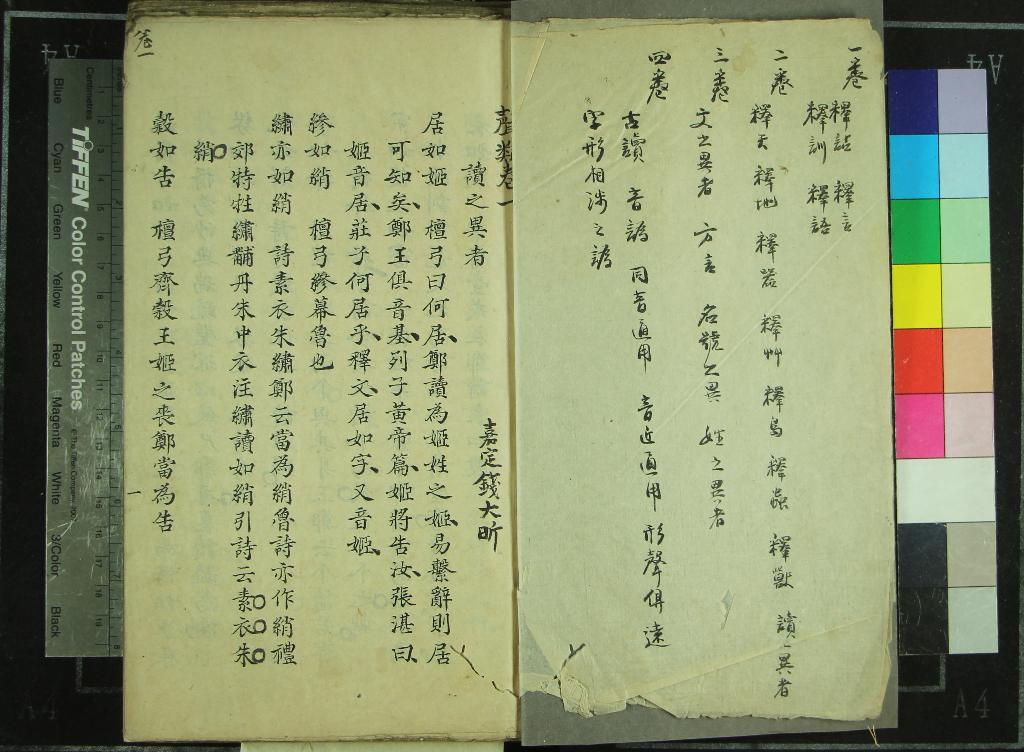 一卷
釋詁 釋言
釋訓 釋語
二卷
釋天 釋地 釋器 釋艸 釋鳥 釋蟲 釋獸 讀之異者
三卷
文之異者 方言 名號之異 姓之異者
四卷
古讀 音譌 同音通用 音近通用 形聲俱遠
字形相涉之譌
聲類卷一
嘉定錢大昕
讀之異者
居如姬 檀弓曰何居鄭讀為姬姓之姬易繫辭則居
可知矣鄭王俱音基列子黃帝篇姬將告汝張湛曰
姬音居莊子何居乎釋文居如字又音姬
縿如綃 檀弓縿幕魯也
繡亦如綃 詩素衣朱繡鄭云當為綃魯詩亦作綃禮
郊特牲繡黼丹朱中衣注繡讀如綃引詩云素衣朱
綃
穀如告 檀弓齊穀王姬之喪鄭當為告
卷一
一
Centimetres
TIFFEN Color Control Patches
Blue Cyan Green Yellow Red Magenta White 3/Color Black
A4
A4
A4
A4